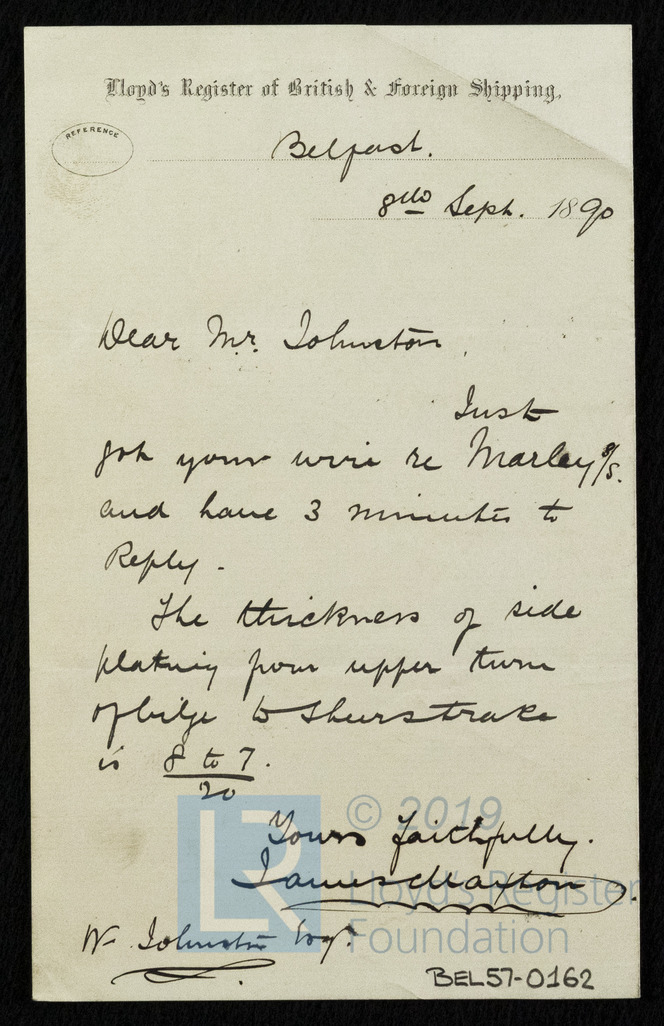 Lloyd's Register of British & Foreign Shipping.
REFERENCE
Belfast.
8th Sept. 1890
Dear Mr. Johnston,
Just
got your wire re Marley s/s.
and have 3 minutes to
Reply.
The thickness of side
plating from upper turn
of bilge to Sheerstrake
is 8 to 7.
20
Yours faithfully.
James Maxton
W Johnston Esq.
LR
© 2019
Lloyd's Register
Foundation
BEL57-0162